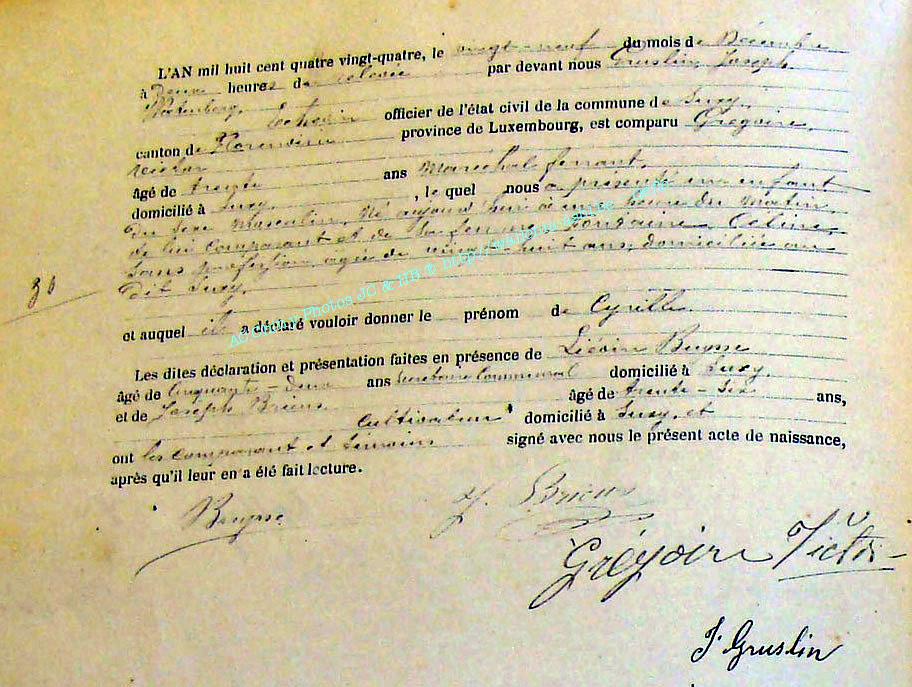 L'AN mil huit cent quatre vingt-quatre, le vingt-neuf du mois de Décembre
à Deux heures de relevée par devant nous Gruslin, Joseph
Echevin officier de l'état civil de la commune de Suxy,
canton de Florenville province de Luxembourg, est comparu Grégoire,
Victor
âgé de trente ans Maréchal ferrant,
domicilié à Suxy, le quel nous a présenté un enfant
du sexe masculin, né aujourd'hui à une heure du matin,
de lui comparant et de sa femme Fontaine, Céline
sans profession, agée de vingt huit ans, domiciliée au
dit Suxy,
30
et auquel il a déclaré vouloir donner le prénom de Cyrille
Les dites déclaration et présentation faites en présence de Liévin Buysse
âgé de Cinquante-Deux ans Secrétaire Communal domicilié à Suxy,
et de Joseph Brieus âgé de trente-six ans,
Cultivateur domicilié à Suxy, et
ont les comparant et témoins signé avec nous le présent acte de naissance,
après qu'il leur en a été fait lecture.
Buysse J. Brieus
Grégoire Victor
J. Gruslin